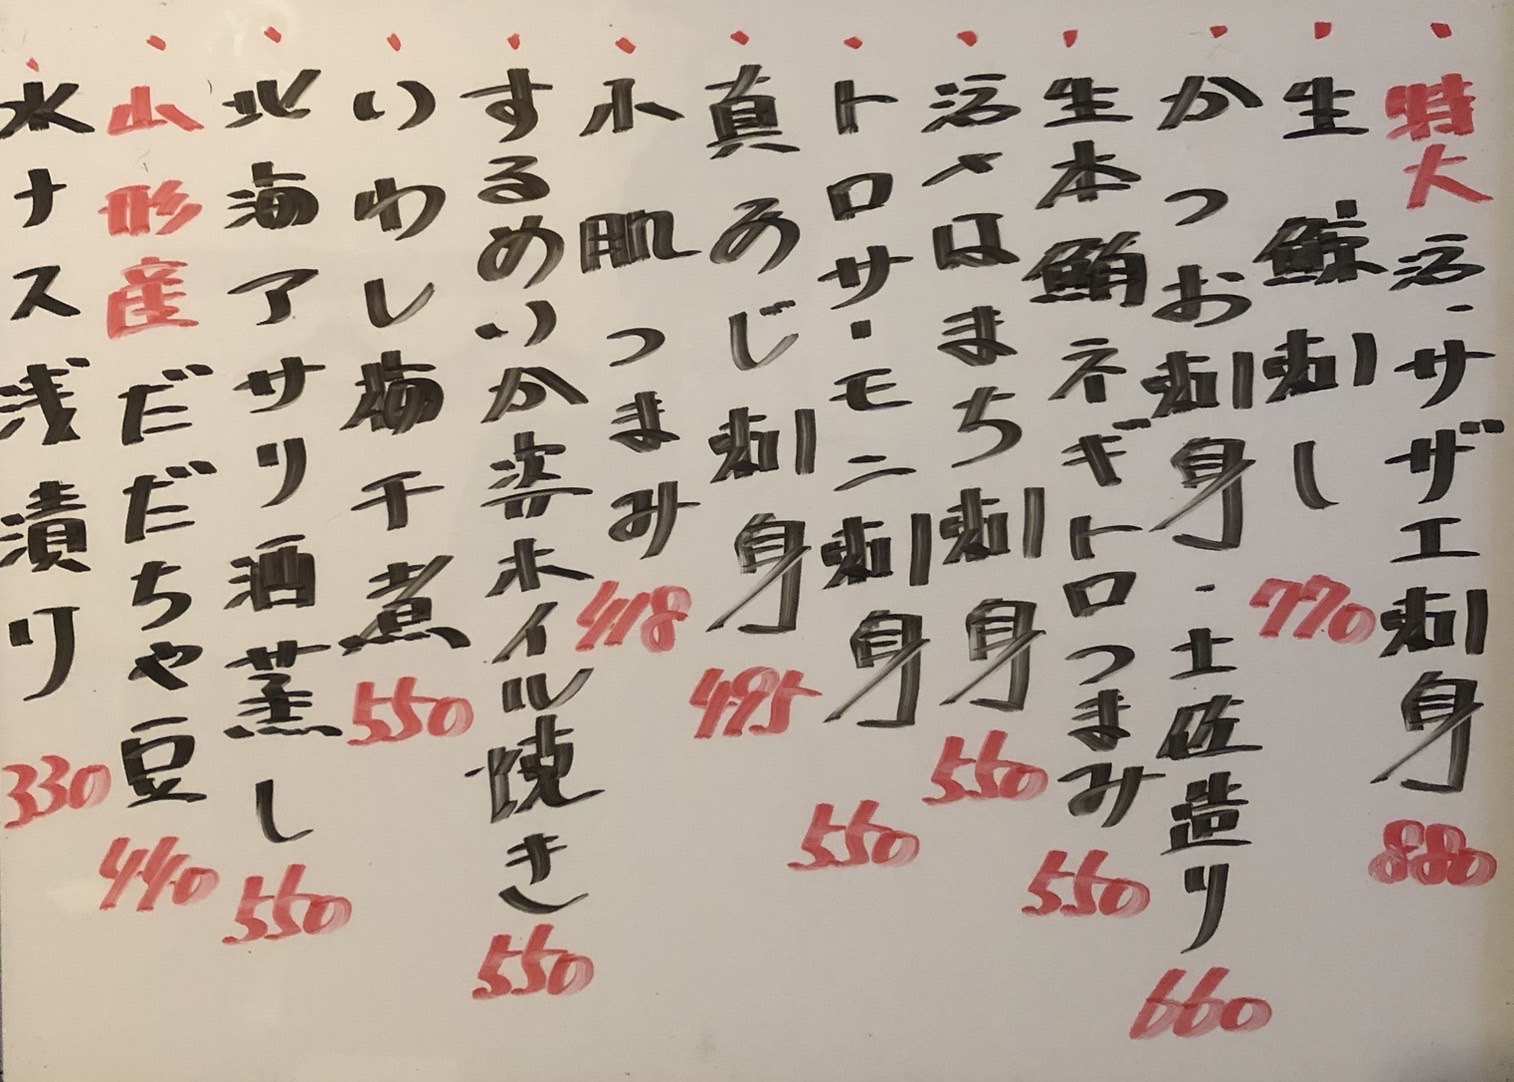 特大活・サザエ刺身 880
生鯨刺し 770
かつお刺身・土佐造り 660
生本鮪ネギトロつまみ 550
活〆はまち刺身 550
トロサーモン刺身 550
真あじ刺身 495
小肌つまみ 418
するめいか姿ホイル焼き 550
いわし梅干煮 550
北海アサリ酒蒸し 550
山形産だだちゃ豆 440
水ナス浅漬り 330